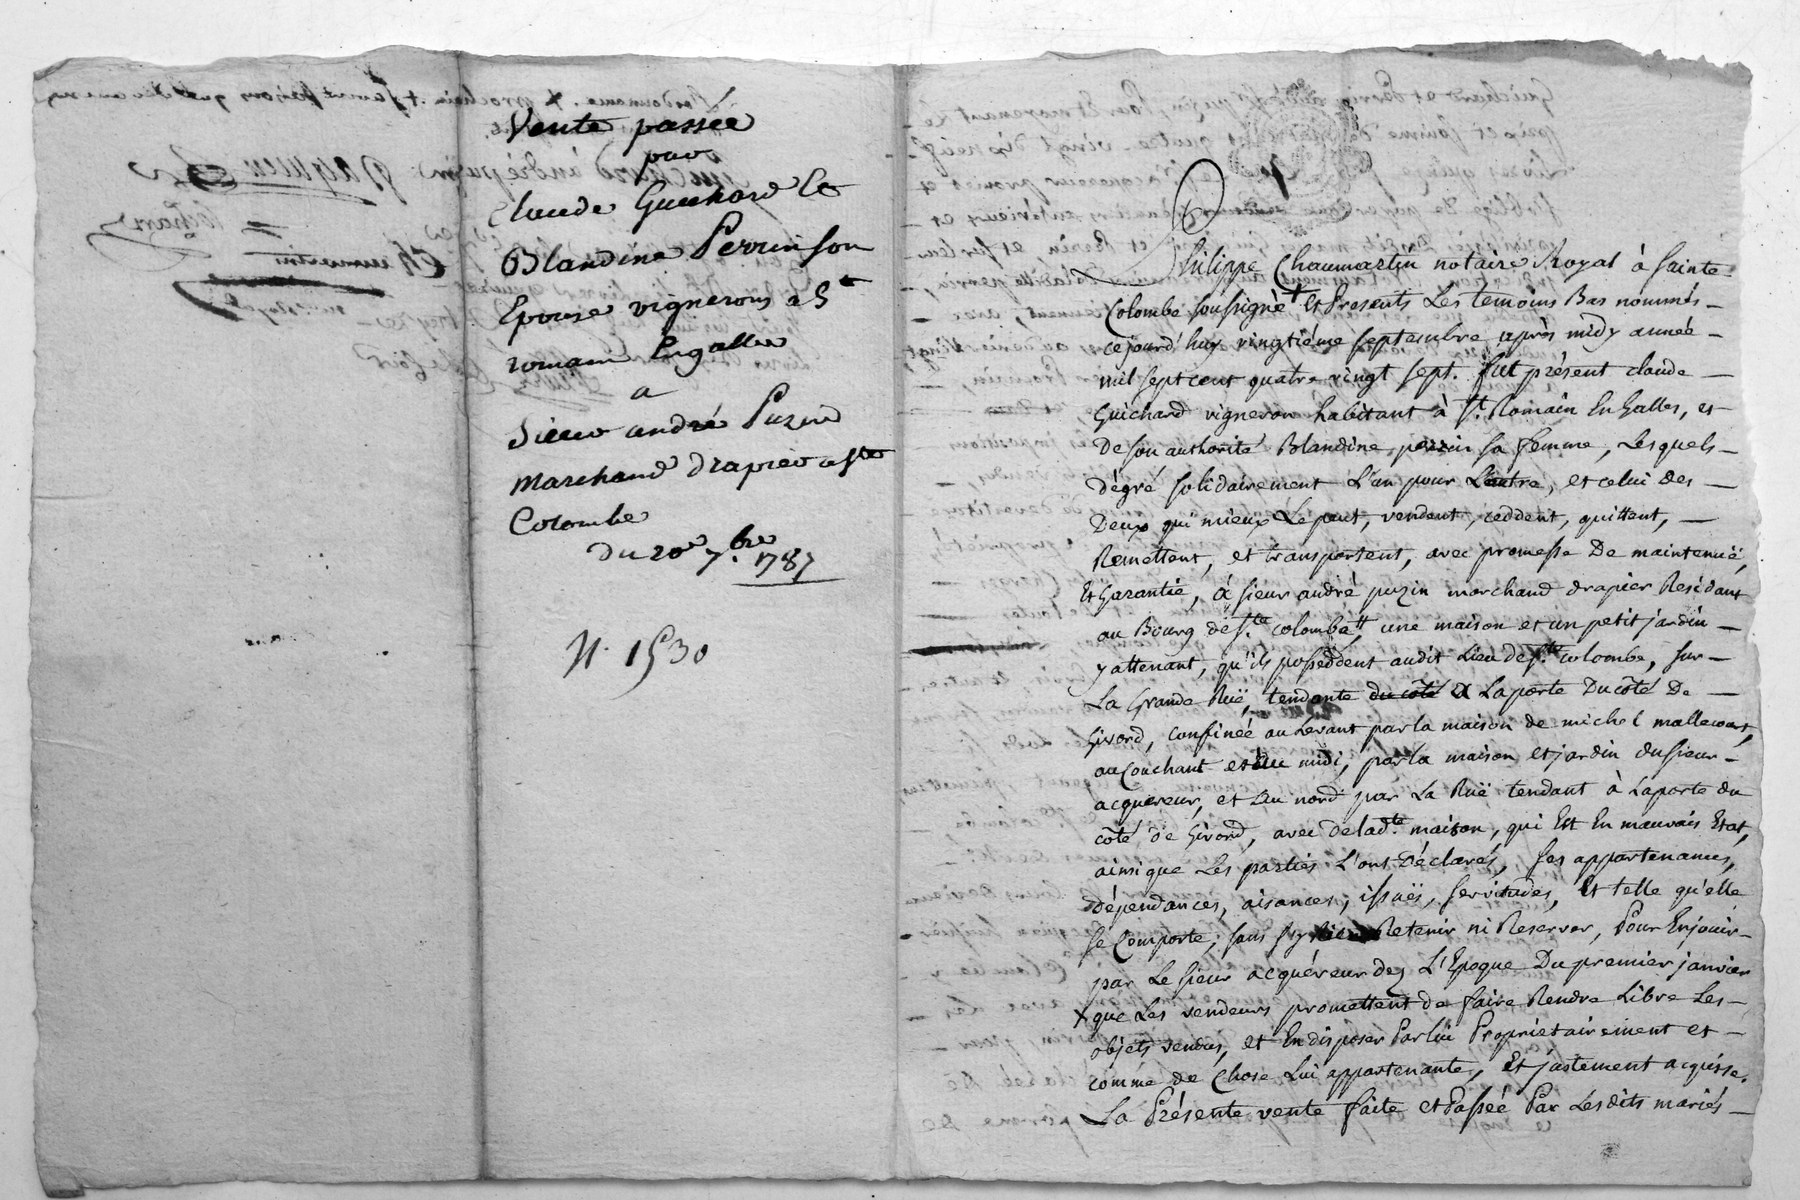 Vente passée
par
Claude Guichard Et
Blandine Perrin son
Epouse vignerons a St
romain Engalles
a
Sieur andré Puzin
Marchand drapier a Ste
Colombe
du 20e 7.bre 1787
N. 1530
Philippe Chaumartin notaire Royal à sainte
Colombe soussigné + Et Presents Les temoins Bas nommés –
cejourd'huy vingtiéme septembre après midy année –
mil sept cent quatre vingt sept. fut présent claude –
Guichard vigneron habitant à St. Romain En Galles, et
De son authorité Blandine perrin sa femme, Lesquels –
dégré solidairement L'un pour L'autre, et celui des –
Deux qui mieux Le peut, vendent, ceddent, quittent, –
Remettent, et transportent, avec promesse De maintenuë,
Et Garantie, à sieur andré puzin marchand drapier Residant
au Bourg de Ste. colombe, une maison et un petit jardin –
y attenant, qu'ils posseddent audit Lieu de Ste. colombe, sur –
La Grande Ruë, tendante du côté a La porte Du côté De –
Givord, confinée au Levant par la maison de michel mallecourt,
au Couchant et au midi, par la maison et jardin du sieur –
acquereur, et Au nord par La Ruë tendant à Laporte du
côté de Givord, avec de lad.te maison, qui Est En mauvais Etat,
ainsi que Les parties L'ont Déclarés, ses appartenances,
dépendances, aisances, issuës, servitudes, Et telle qu'elle
se Comporte, sans s'y rien Retenir ni Reserver, Pour Enjouir –
par Le sieur acquéreur dez L'Epoque Du premier janvier
x que Les vendeurs promettent de faire Rendre Libre Les –
objets vendus, et En disposer Par lui Proprietairement et –
comme de Chose Lui appartenante, Et justement acquise.
La Présente vente faite et Passée Par Lesdits mariés –